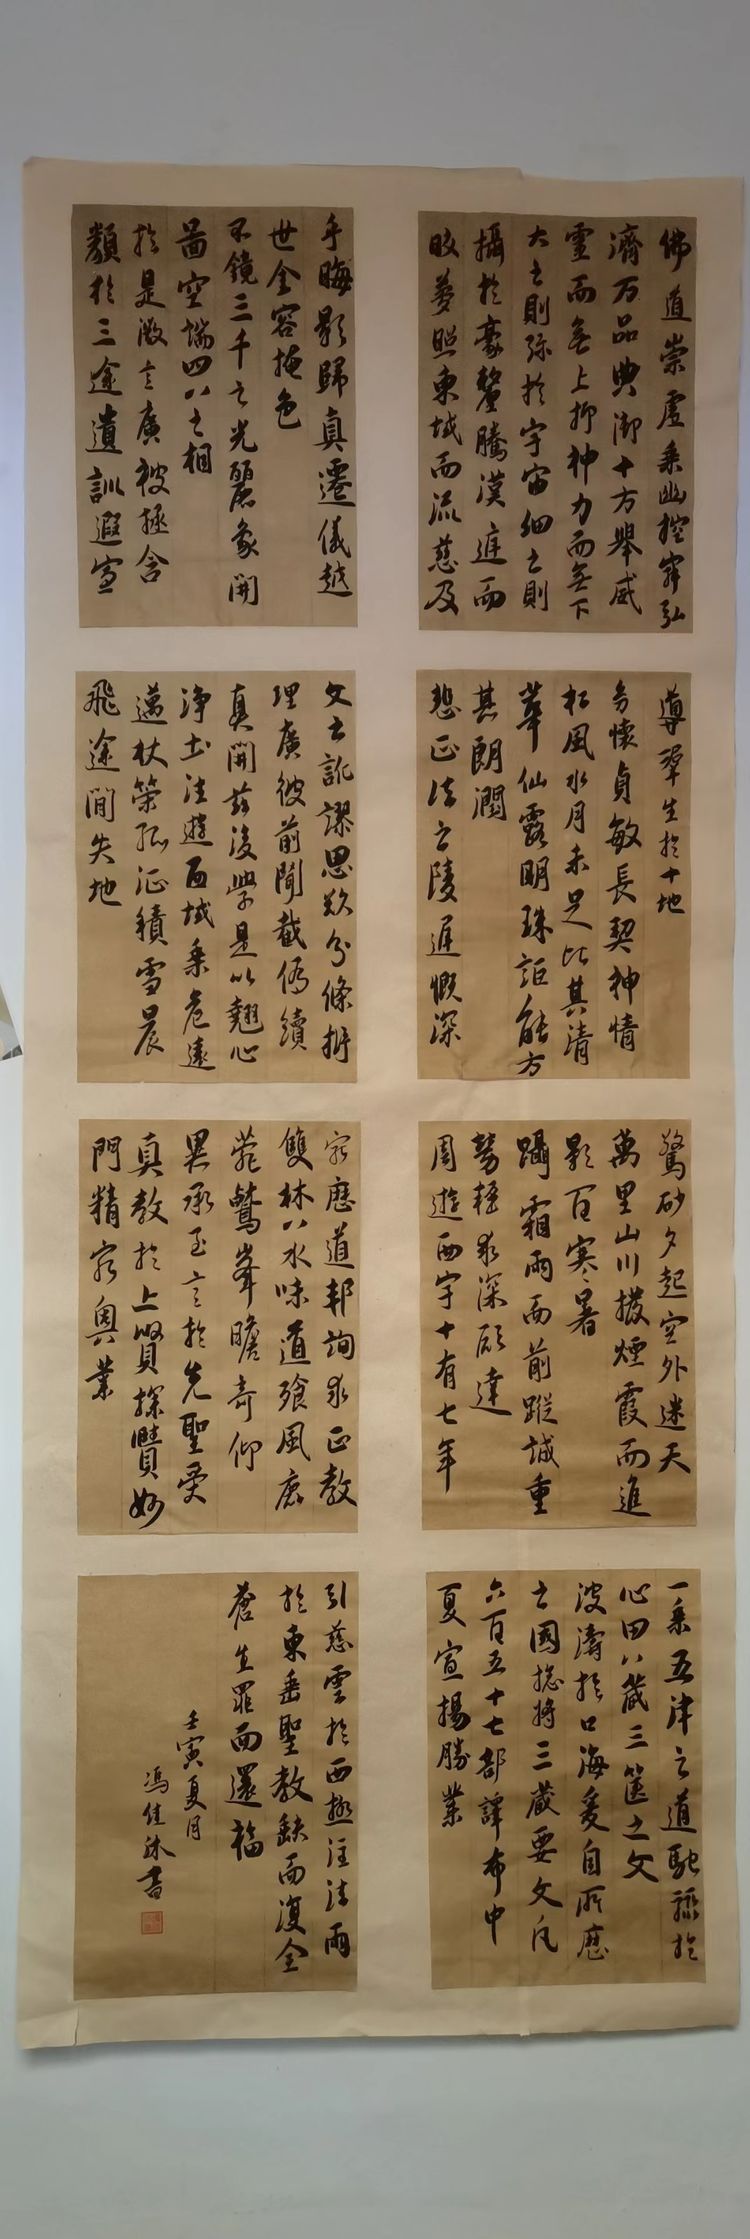 佛道崇虛乘幽控寂弘
濟万品典御十方舉威
靈而無上抑神力而無下
大之則弥於宇宙細之則
攝於豪釐騰漢庭而
皎夢照東域而流慈及
乎晦影歸真遷儀越
世金容掩色
不鏡三千之光麗象開
啚空端四八之相
於是微言廣被拯含
類於三途遺訓遐宣
導群生於十地
多懷貞敏長契神情
松風水月未足比其清
華仙露明珠詎能方
其朗潤
愁正法之陵遲慨深
文之訛謬思欲分條析
理廣彼前聞截偽續
真開茲後學是以翹心
淨土法遊西域乘危遠
邁杖策孤征積雪晨
飛途間失地
驚砂夕起空外迷天
萬里山川撥煙霞而進
影百寒暑
躡霜雨而前蹤誠重
勞輕求深願達
周遊西宇十有七年
窮歷道邦詢求正教
雙林八水味道飡風鹿
菀鷲峯瞻奇仰
異承至言於先聖受
真教於上賢探賾妙
門精窮奧業
一乘五津之道馳驟於
心田八藏三篋之文
波濤於口海爰自所歷
之國總將三藏要文凡
六百五十七部譯布中
夏宣揚勝業
引慈雲於西極注法雨
於東垂聖教缺而復全
蒼生罪而還福
壬寅夏月
馮佳沐書